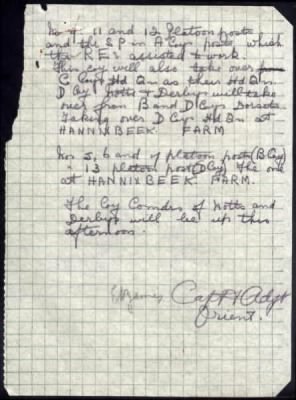 No 9, 11 and 12 Platoon posts
and the S P in A Coy. posts which
the R.E's assisted to work
This coy will also take over
C Coys Hd Qrs as their Hd Qrs.
D Coy Notts & Derbys will take
over from B and D Coys Dorsets
Taking over D Coys Hd Qrs at
HANNIXBEEK FARM
Nos 5, 6 and 7 platoon posts (B Coy)
13 platoon post (D Coy) the one
at HANNIXBEEK FARM.
The Coy Comdrs of Notts and
Derbys will be up this
afternoon.
Capt & Adjt
Orient.